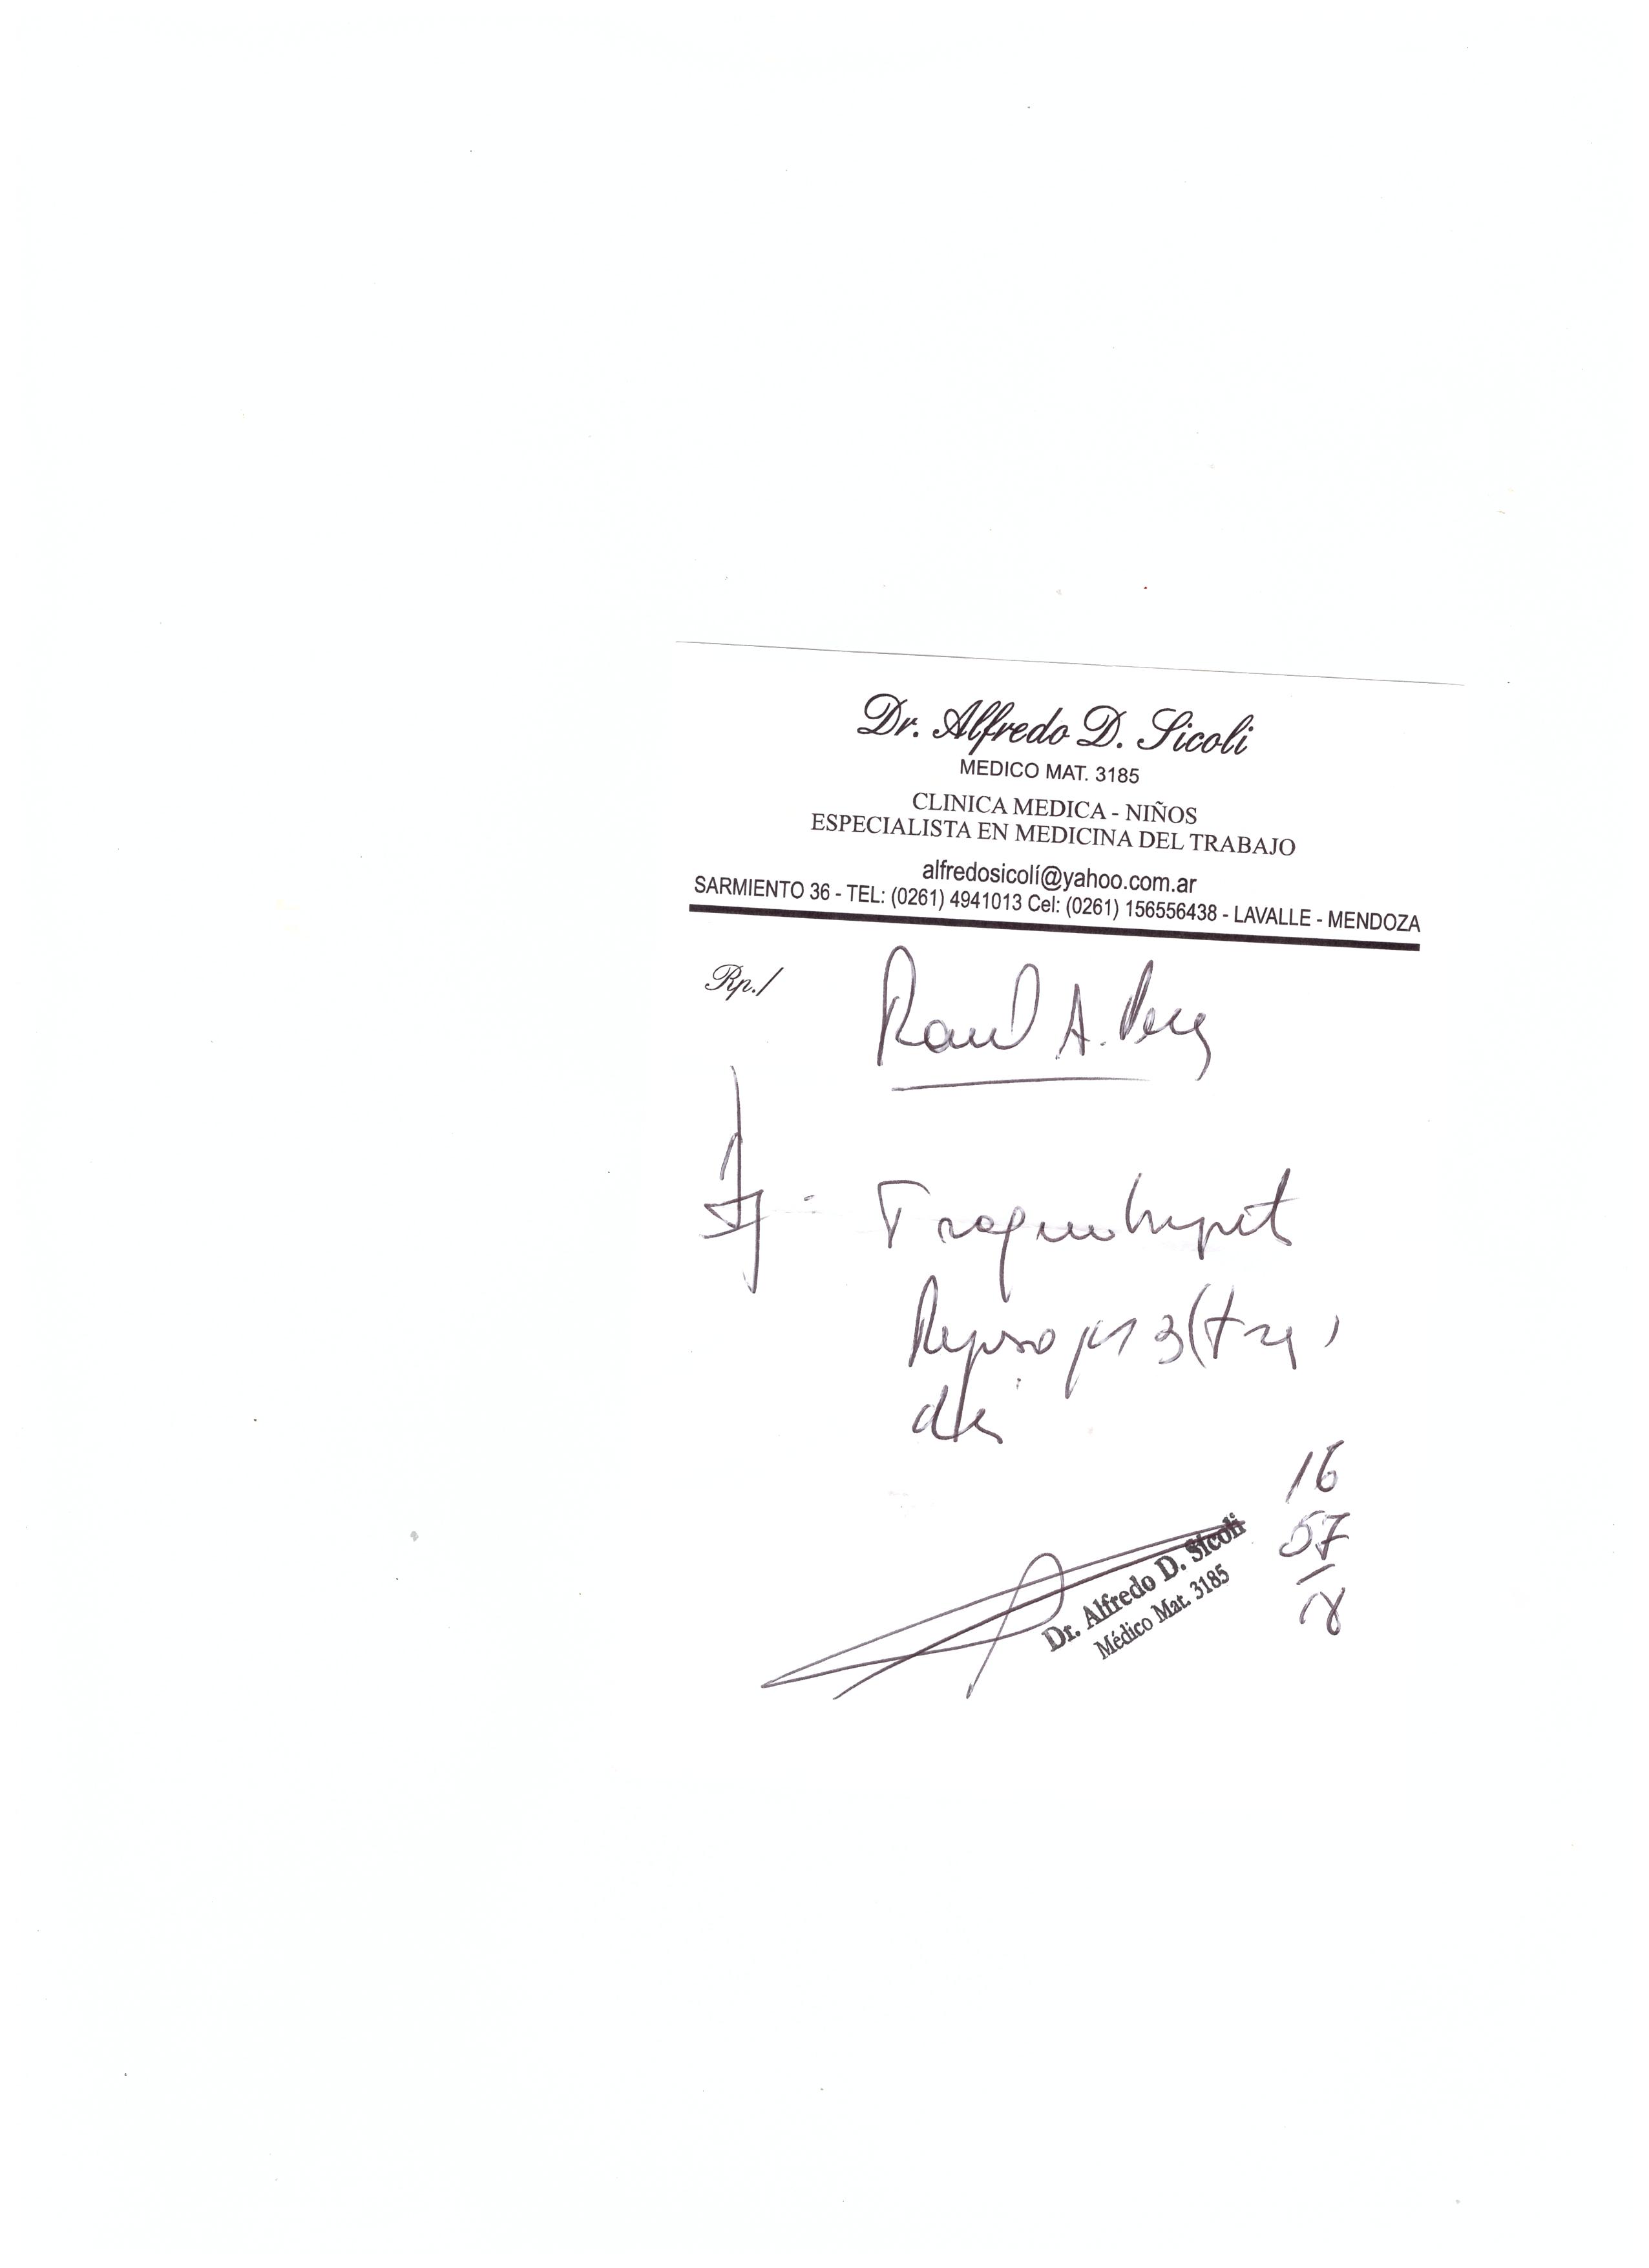 Dr. Alfredo D. Sicoli
MEDICO MAT. 3185
CLINICA MEDICA - NIÑOS
ESPECIALISTA EN MEDICINA DEL TRABAJO
alfredosicolí@yahoo.com.ar
SARMIENTO 36 - TEL: (0261) 4941013 Cel: (0261) 156556438 - LAVALLE - MENDOZA
Rp./
Raul A.
Reposo 3 (tres)
16
Dr. Alfredo D. Sicoli
Médico Mat. 3185